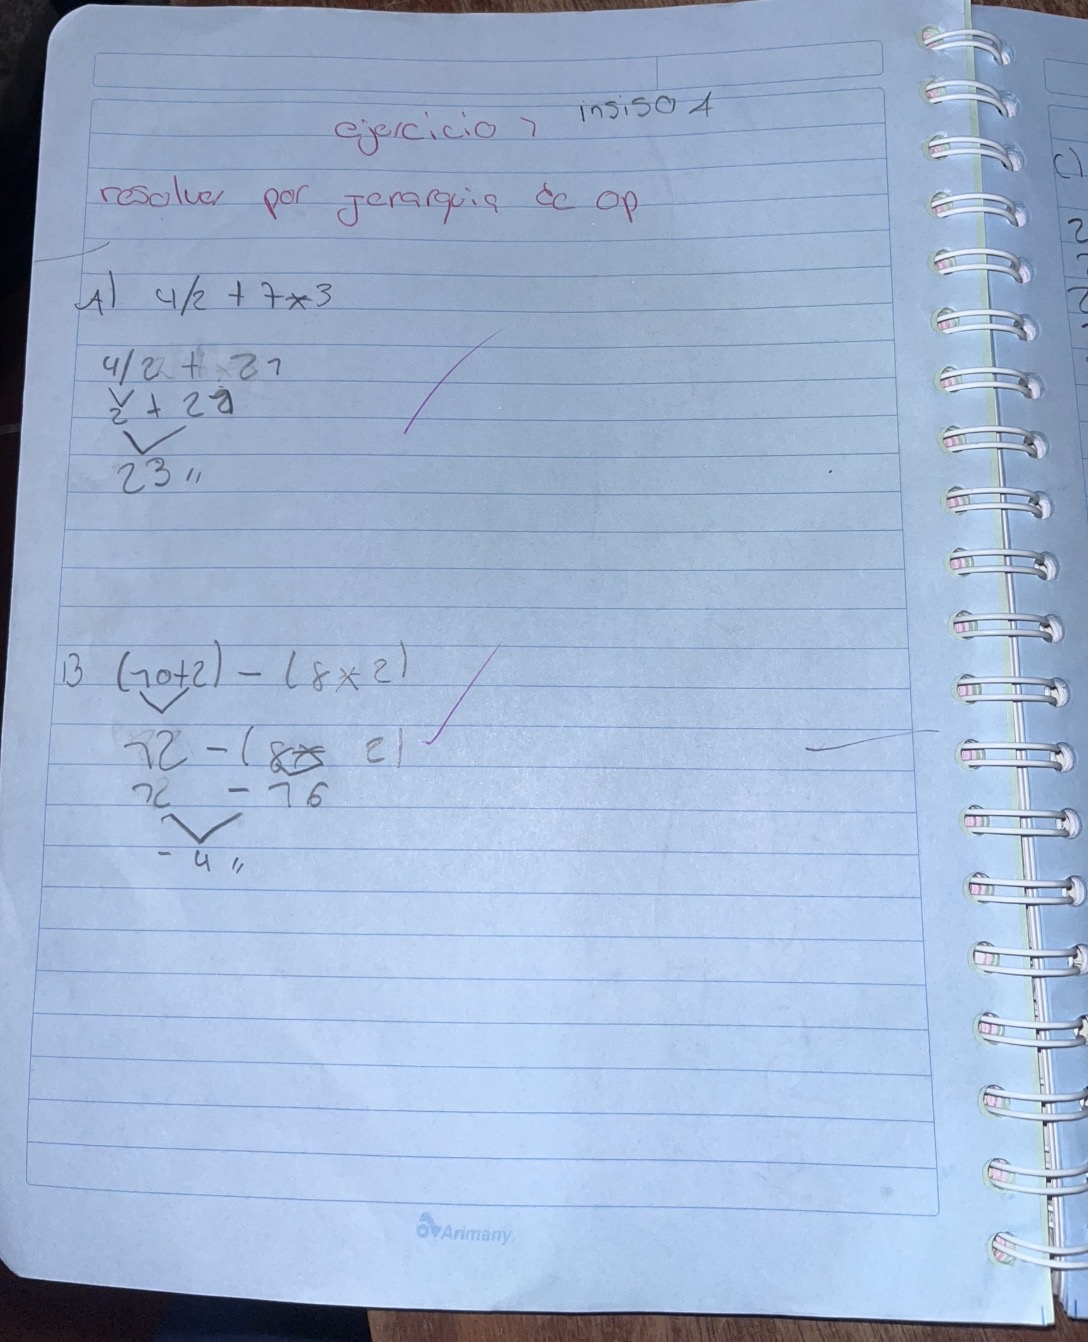 insiso 1
ejercicio 1
resolver por jerarquia de op
A) 4/2 + 7*3
4/2 + 21
2 + 21
23 "
B (10+2) - (8*2)
12 - (8* 2)
12 - 16
- 4 "
Arimany
C)
2